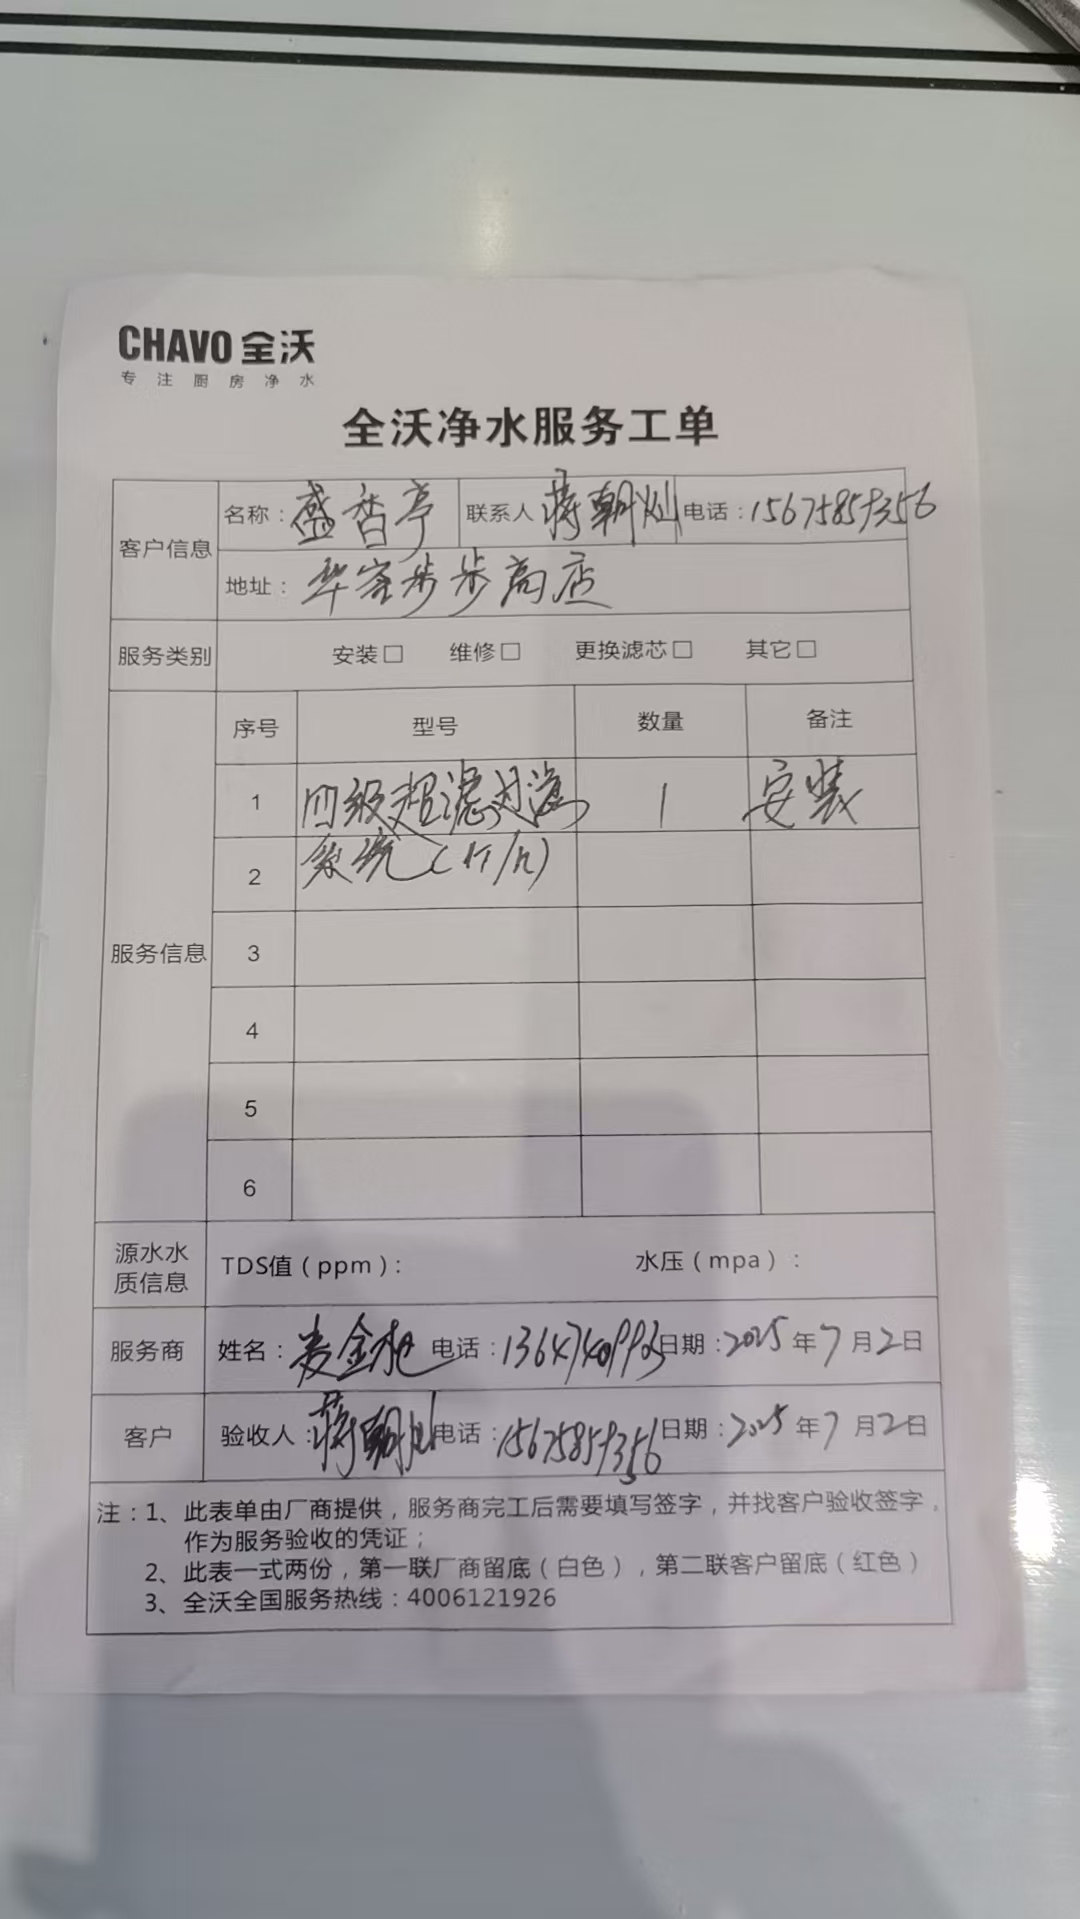 CHAVO 全沃
专注厨房净水
全沃净水服务工单
客户信息 名称：盛香亭 联系人 蒋朝灿 电话：15675859356
地址：华容步步高店
服务类别 安装□ 维修□ 更换滤芯□ 其它□
服务信息 序号 型号 数量 备注
1 四级超滤过滤 1 安装
2 系统(1T/h)
3
4
5
6
源水水质信息 TDS值（ppm）： 水压（mpa）：
服务商 姓名： 金 电话： 日期：2025年7月2日
客户 验收人：蒋朝灿 电话：15675859356 日期：2025年7月2日
注：1、此表单由厂商提供，服务商完工后需要填写签字，并找客户验收签字，
作为服务验收的凭证；
2、此表一式两份，第一联厂商留底（白色），第二联客户留底（红色）
3、全沃全国服务热线：4006121926